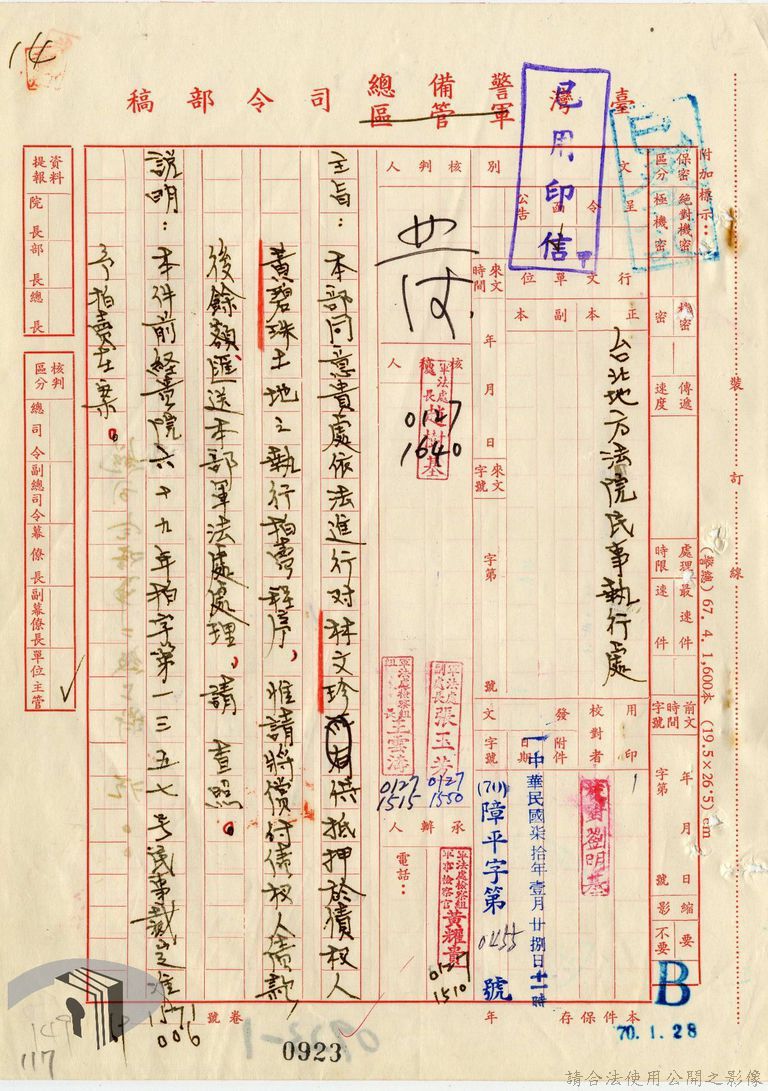 14
臺灣警備總司令部稿
軍管區
已用印信
附加標示：
保密區分
絕對機密
極機密
機密
密
傳遞速度
處理時限
最速件
速件
前文時間字號
年 月 日
字第 號
縮影
要
不要
B
70.1.28
裝 訂 線
(警總) 67. 4. 1,600本 (19.5×26.5) cm
文別
呈
令
公告
行文單位
正本
副本
台北地方法院民事執行處
來文時間
年 月 日
來文字號
字第 號
用印
校對者
劉明
發文
附件
日期
字號
中華民國柒拾年壹月廿捌日十一時
(70)障平字第0455號
核判人
核稿人
軍法處處長
趙樹基
0127
1640
軍法處副處長
張玉
0127
1550
軍法處檢察組組長
王雲濤
0127
1515
承辦人
軍法處檢察組軍事檢察官
黃耀貴
0127
1510
電話：
主旨：本部同意貴處依法進行对林文珍所有供抵押於債權人
黃碧珠土地之執行拍賣程序，惟請將償付債权人債款
後餘額匯送本部軍法處處理，請 查照。
說明：本件前經貴院六十九年拍字第一三五七号民事裁定准
予拍賣在案。
資料提報
院長
部長
總長
核判區分
總司令
副總司令
幕僚長
副幕僚長
單位主管
本件保存 年
卷號
1571
006
0923
117
請合法使用公開之影像